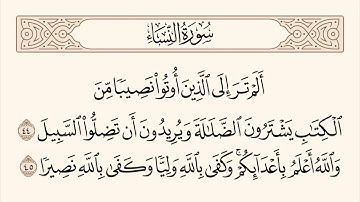 سُورَةُ النِّسَاءِ
أَلَمْ تَرَ إِلَى ٱلَّذِينَ أُوتُوا۟ نَصِيبًا مِّنَ
ٱلْكِتَٰبِ يَشْتَرُونَ ٱلضَّلَٰلَةَ وَيُرِيدُونَ أَن تَضِلُّوا۟ ٱلسَّبِيلَ ٤٤
وَٱللَّهُ أَعْلَمُ بِأَعْدَآئِكُمْ ۚ وَكَفَىٰ بِٱللَّهِ وَلِيًّا وَكَفَىٰ بِٱللَّهِ نَصِيرًا ٤٥